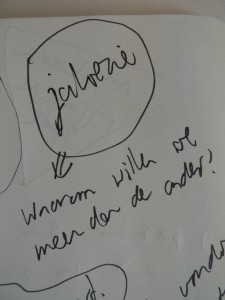 jaloezie
waarom willen we
meer dan de ander?